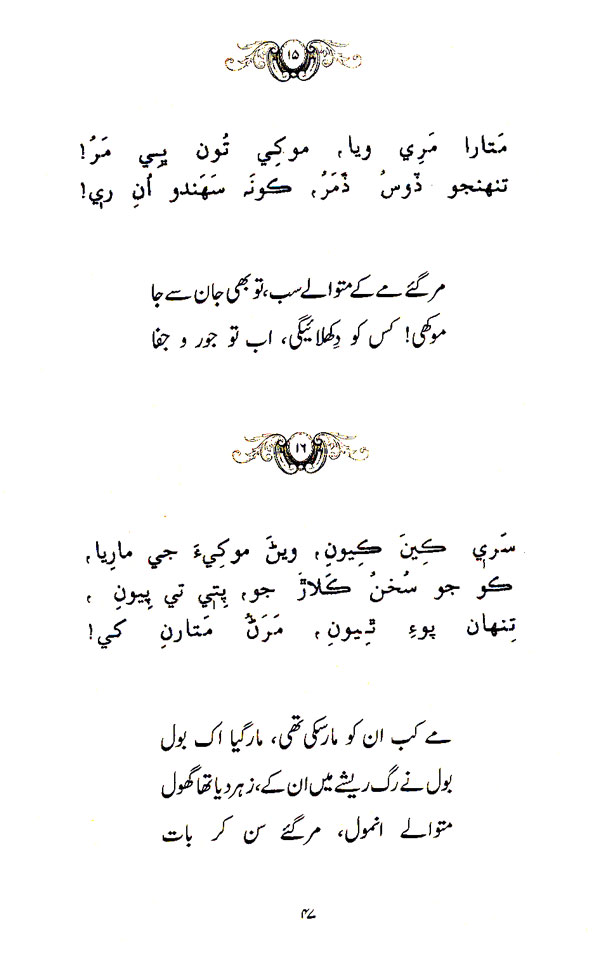 ۱۵
مَتارا مَرِي ويا، موکِي تُون پِيِ مَرُ!
تنهنجو ڏوسُ ڏَمَرُ، ڪونَہ سَھَندو اُنِ رِي!
مر گئے مے کے متوالے سب، تو بھی جان سے جا
موکھی! کس کو دِکھلائیگی، اب تو جور و جفا
۱٦
سَرِي ڪِينَ ڪِيونِ، ويڻَ موکِيءَ جي مارِيا،
ڪو جو سُخنُ ڪَلاڙَ جو، پِتِي تي پِيونِ،
تِنهان پوءِ ٿِيونِ، مَرَڻُ مَتارنِ کي!
مے کب ان کو مارسکی تھی، مار گیا اک بول
بول نے رگ ریشے میں ان کے، زہر دیا تھا گھول
متوالے انمول، مر گئے سن کر بات
۴۷